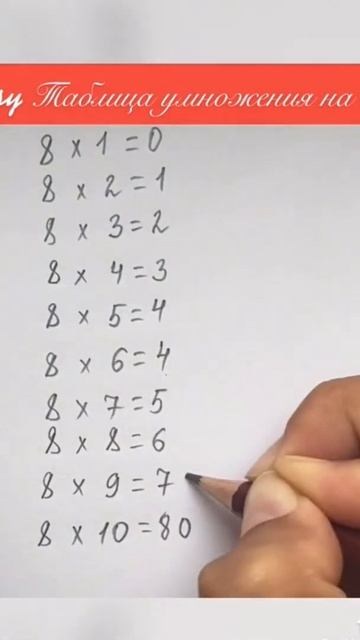 Таблица умножения на
8 × 1 = 0
8 × 2 = 1
8 × 3 = 2
8 × 4 = 3
8 × 5 = 4
8 × 6 = 4
8 × 7 = 5
8 × 8 = 6
8 × 9 = 7
8 × 10 = 80